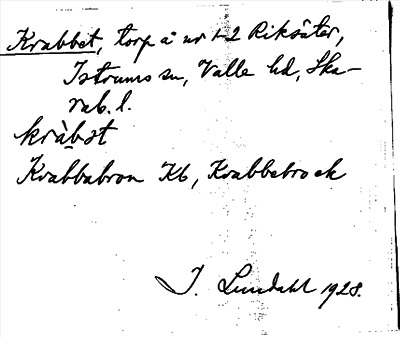 Krabbet, torp å nr 1-2 Riksäter,
Istrums sn, Valle hd, Ska-
rab. l.
kràbət
Krabbabron Kb, Krabbebroek
I. Lundahl 1928.